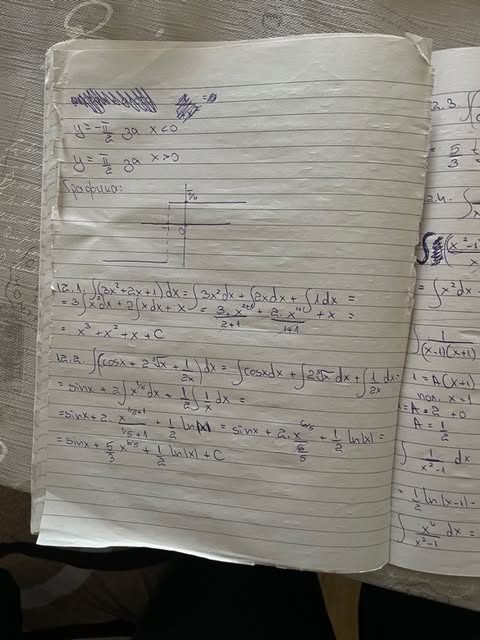 y = -π/2 за x<0
y = π/2 за x>0
Графика:
0
12.1. ∫(3x²+2x+1)dx = ∫3x²dx + ∫2xdx + ∫1dx =
= 3∫x²dx + 2∫xdx + x = 3.x²⁺¹/2+1 + 2.x¹⁺¹/1+1 + x =
= x³ + x² + x + C
12.2. ∫(cosx + 2⁵√x + 1/2x)dx = ∫cosxdx + ∫2⁵√x dx + ∫1/2x dx =
= sinx + 2∫x^1/5 dx + 1/2 ∫1/x dx =
= sinx + 2. x^1/5+1 / 1/5+1 + 1/2 ln|x| = sinx + 2. x^6/5 / 6/5 + 1/2 ln|x| =
= sinx + 5/3 x^6/5 + 1/2 ln|x| + C
2.3. ∫
= 5/3
2.4. ∫
∫(x²-1
= ∫x²dx -
∫ 1/(x-1)(x+1)
1 = A(x+1)
пол. x=1
1 = A.2 + 0
A = 1/2
∫ 1/x²-1 dx
= 1/2 ln|x-1| -
∫ x⁴/x²-1 dx =